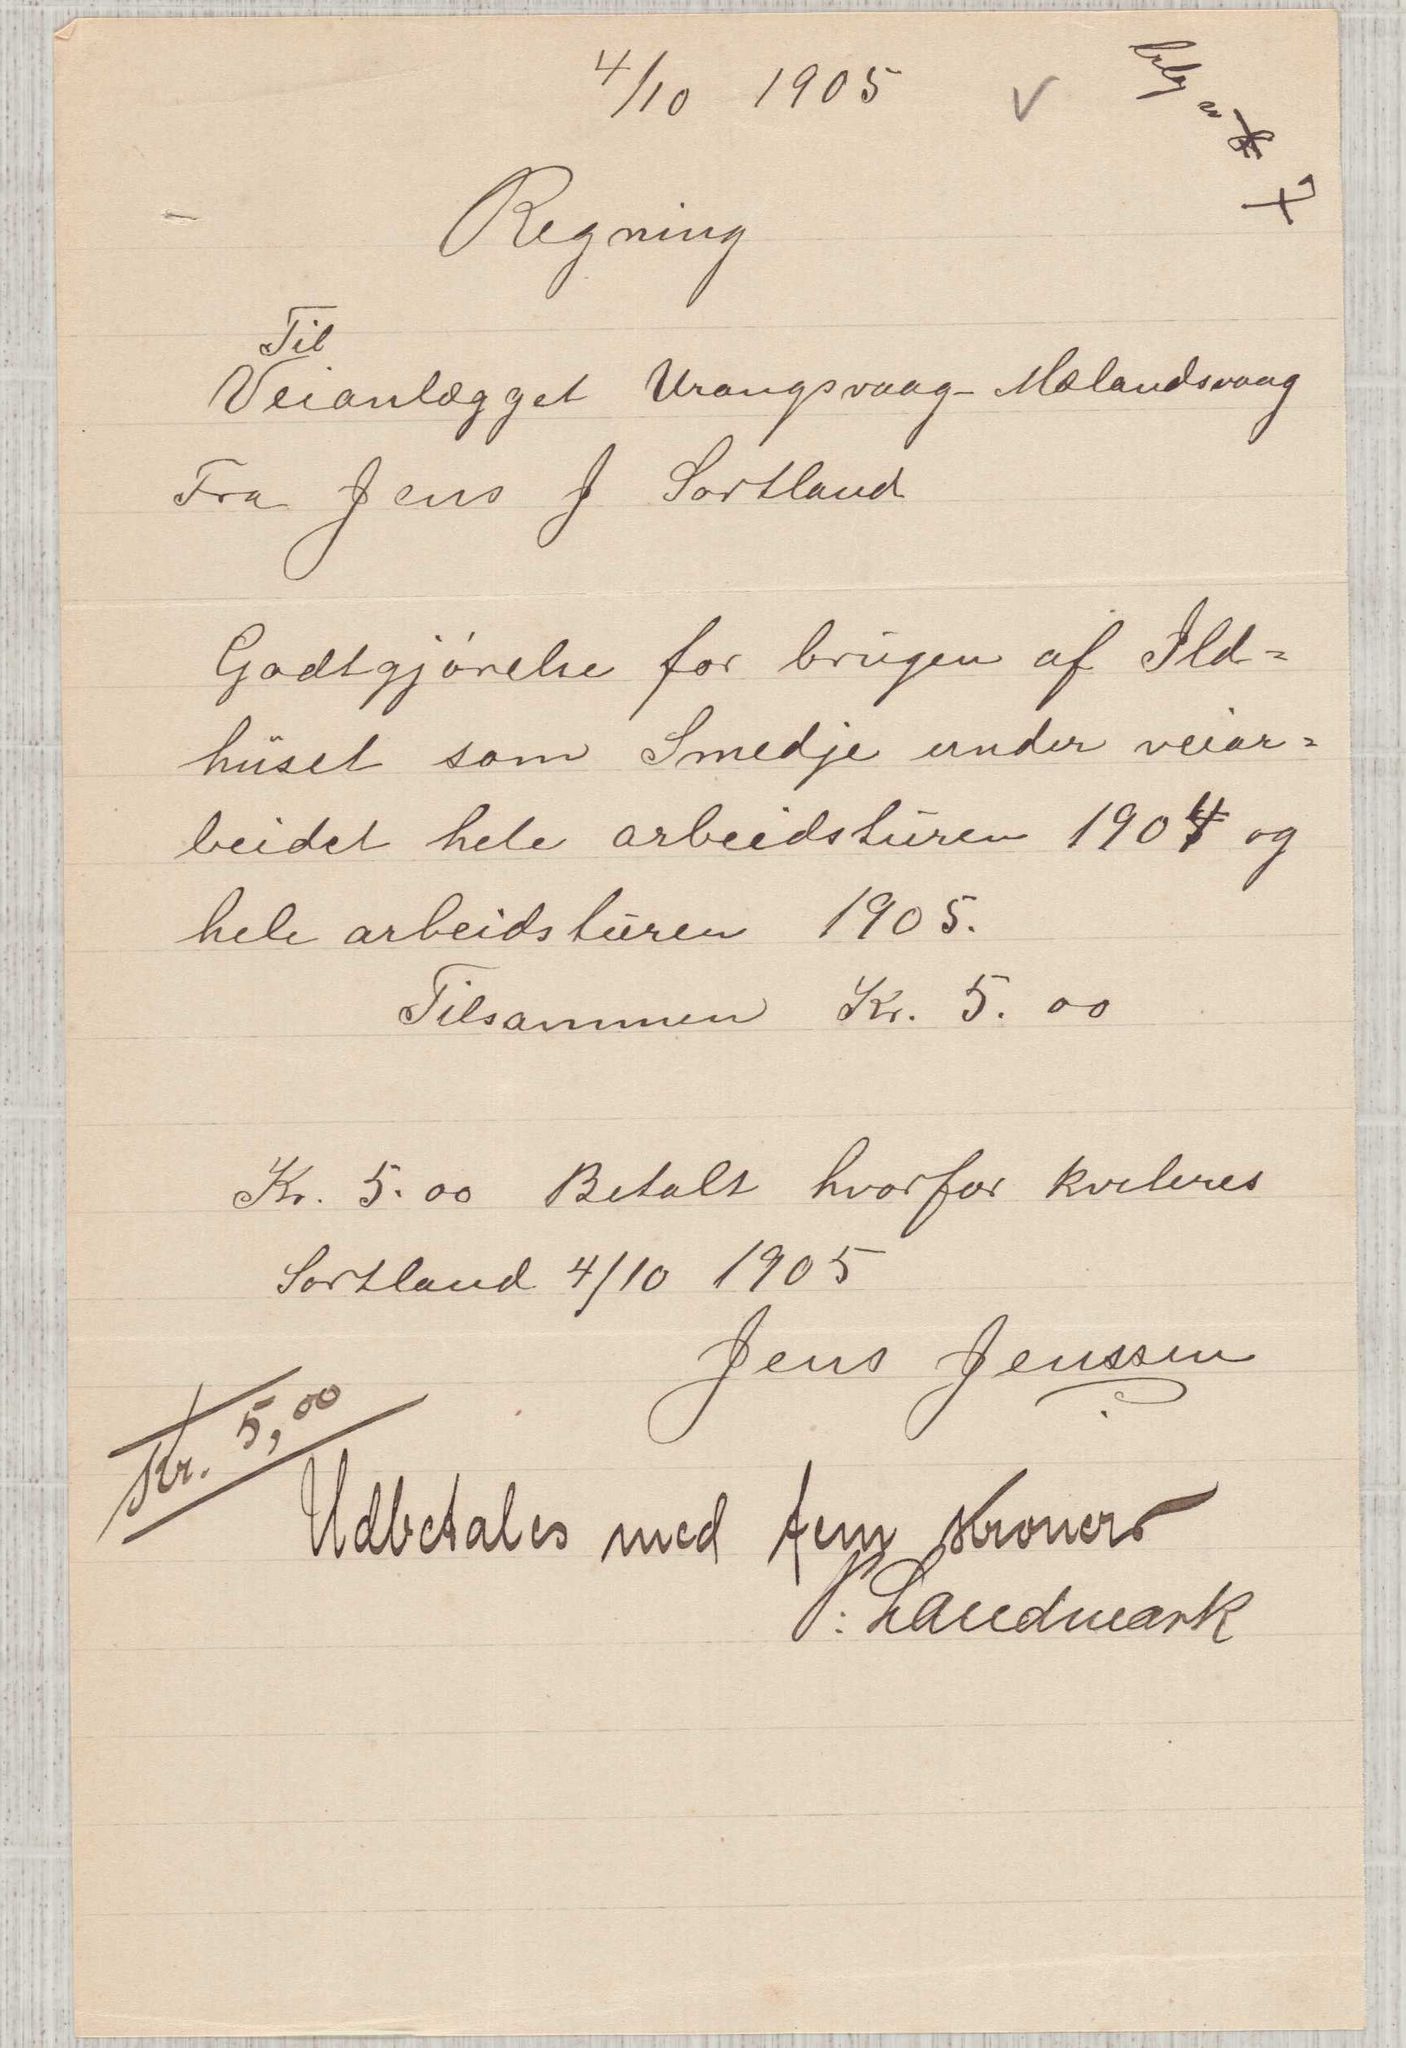 4/10 1905
Regning
Til
Veianlægget Urangsvaag - Mælandsvaag
Fra Jens J Sortland
Godtgjørelse for brugen af Ild=
huset som Smedje under veiar=
beidet hele arbeidsturen 1904 og
hele arbeidsturen 1905.
Tilsammen Kr. 5.00
Kr. 5.00 Betalt hvorfor kviteres
Sortland 4/10 1905
Jens Jenssen
Kr. 5,00
Udbetales med fem kroner
P. Landmark